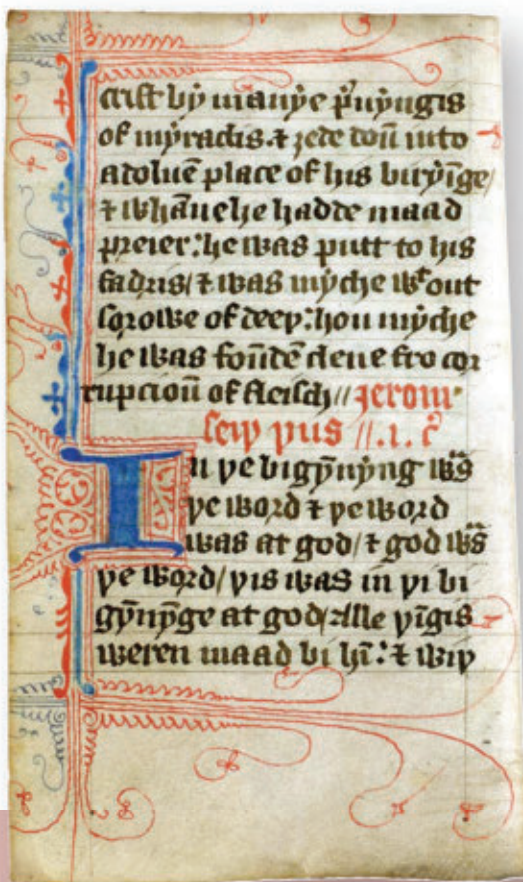 crist bẏ manẏe p̃uẏngis
of mẏraclis. ⁊ ȝede doū into
a doluē place of his birẏīge/
⁊ whāne he hadde maad
preier: he was putt to his
fadris/ ⁊ was mẏche wᵗ out
sorowe of deeþ: hou mẏche
he was foūdē clene fro cor
rupcioū of fleisch// Jerom
seiþ þus //.i. c̄
In þe bigẏ̄nẏng wᵃs
þe word ⁊ þe word
was at god/ ⁊ god wᵃs
þe word/ þis was in þi bi
gẏ̄nẏ̄ge at god/ alle þīgis
weren maad bi hī: ⁊ wiþ